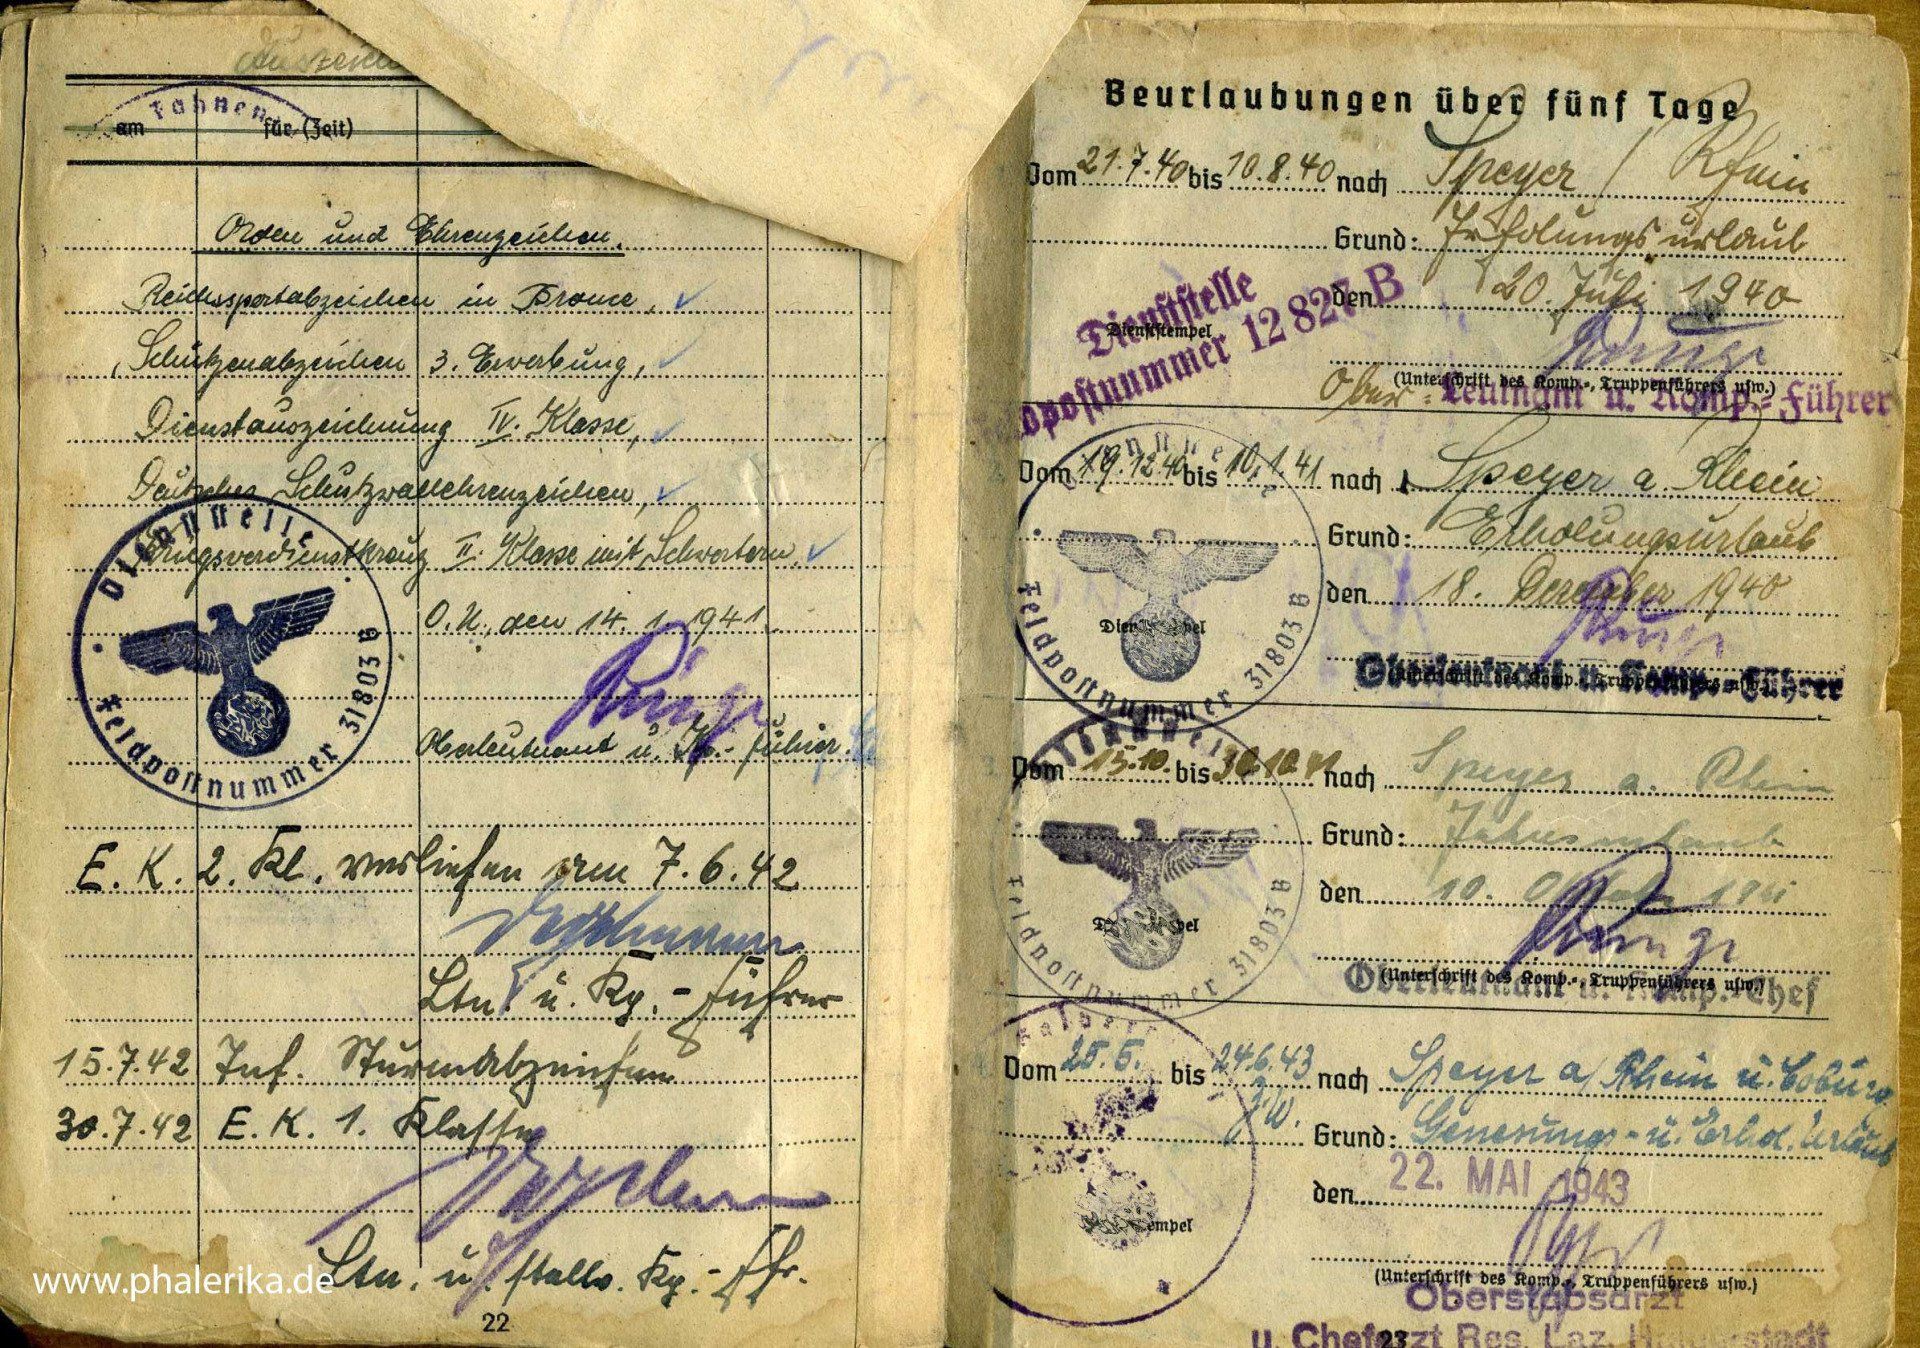 Fahnen
am
für (Zeit)
Orden und Ehrenzeichen.
Reichssportabzeichen in Bronce,
Schützenabzeichen 3. Erwerbung,
Dienstauszeichnung IV. Klasse,
Deutsches Schutzwallehrenzeichen,
Kriegsverdienstkreuz II. Klasse mit Schwertern,
O.U., den 14. 1. 1941.
Dienststelle
Feldpostnummer 31803 B
Oberleutnant u. Kp.-Führer.
E. K. 2. Kl. verliehen am 7.6.42
Ltn. u. Kp.-Führer
15.7.42 Inf. Sturmabzeichen
30.7.42 E. K. 1. Klasse
Ltn. u. stellv. Kp.-Fhr.
www.phalerika.de
22
Beurlaubungen über fünf Tage
Vom 21.7.40 bis 10.8.40 nach Speyer / Rhein
Grund: Erholungsurlaub
den 20. Juli 1940
Dienststempel
Dienststelle
Feldpostnummer 12827 B
(Unterschrift des Komp.-, Truppenführers usw.)
Ober-Leutnant u. Komp.-Führer
Vom 19.12.40 bis 10.1.41 nach Speyer a Rhein
Grund: Erholungsurlaub
den 18. Dezember 1940
Feldpostnummer 31803 B
Oberleutnant u. Komp.-Führer
Vom 15.10. bis 30.10.41 nach Speyer a. Rhein
Grund: Jahresurlaub
den 10. Oktober 1941
Feldpostnummer 31803 B
(Unterschrift des Komp.-, Truppenführers usw.)
Oberleutnant u. Komp.-Chef
Vom 25.5. bis 24.6.43 nach Speyer a/Rhein u. Coburg
Grund: Genesungs- u. Erhol. Urlaub
den 22. MAI 1943
(Unterschrift des Komp.-, Truppenführers usw.)
Oberstabsarzt
u. Chefarzt Res. Laz.
23